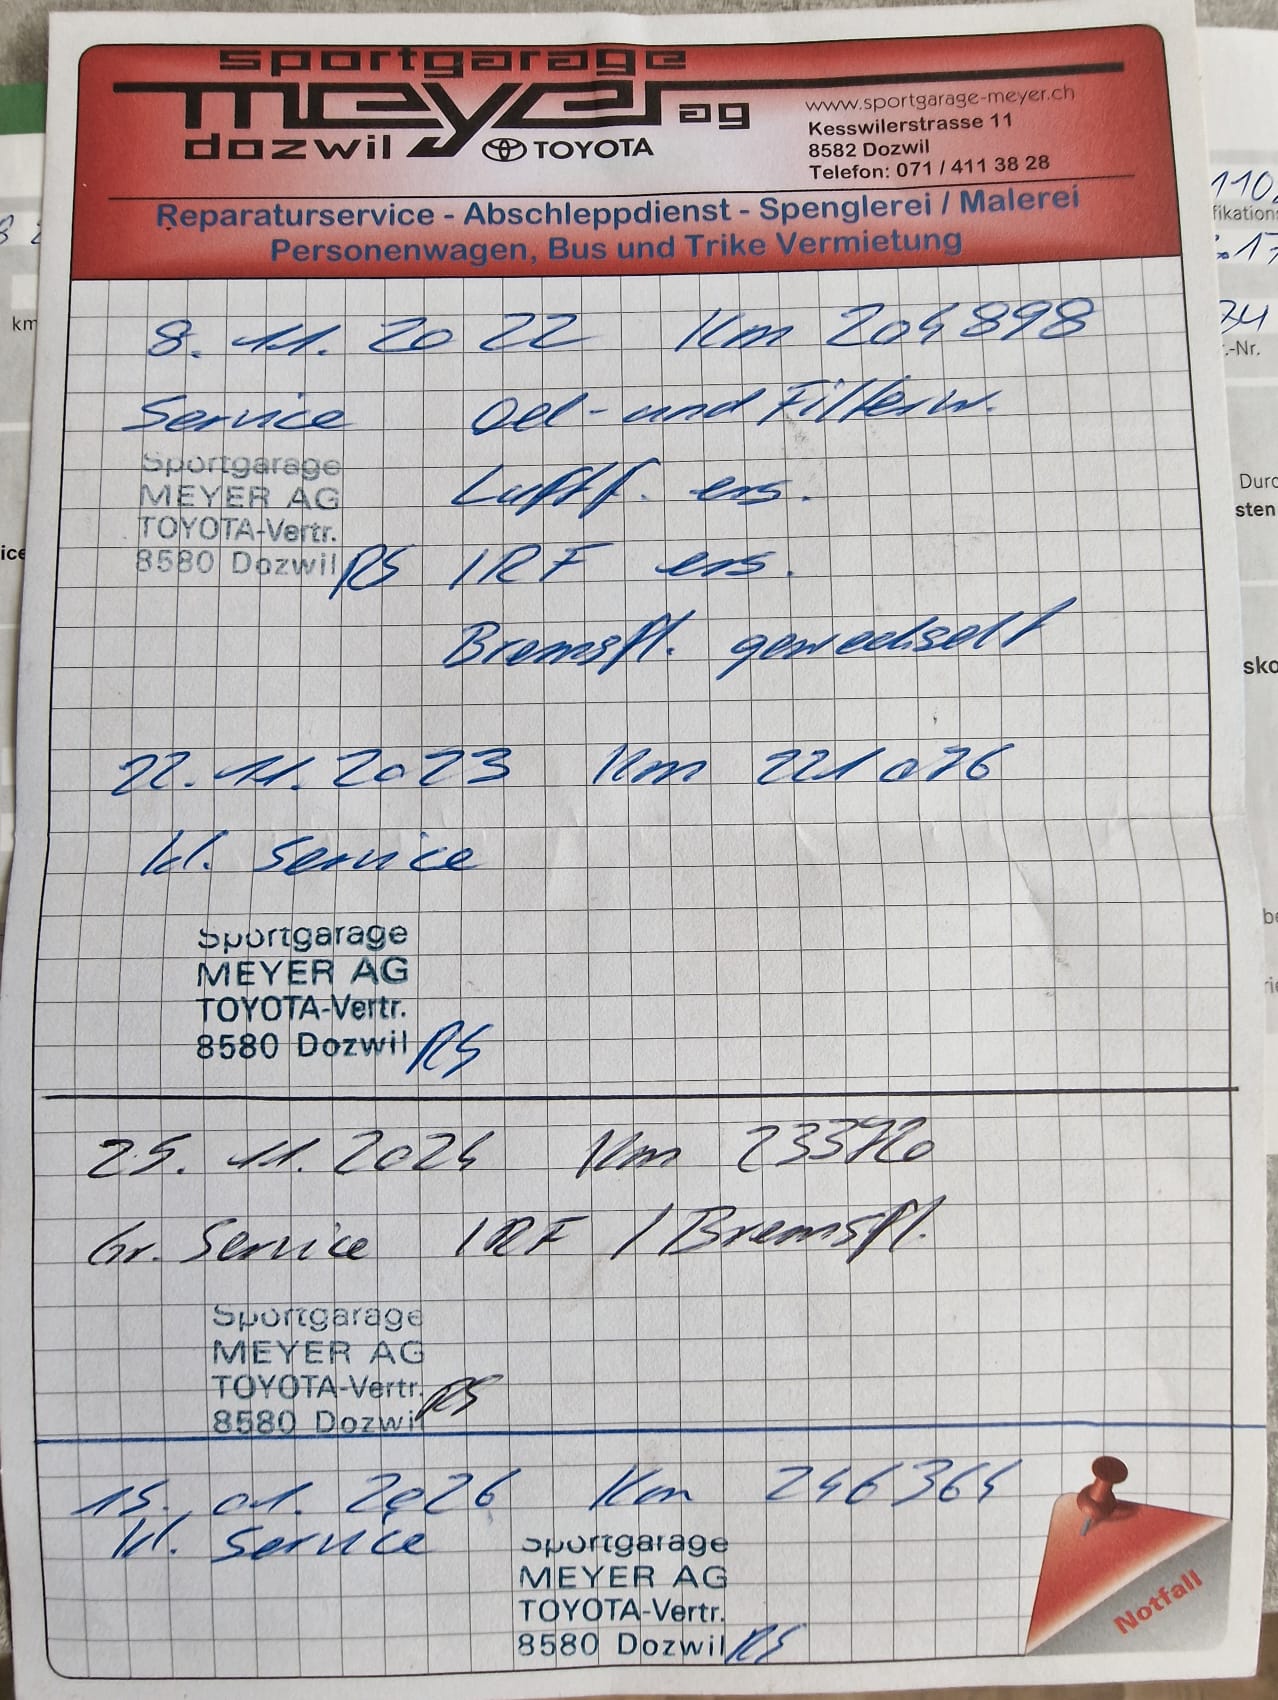 sportgarage
meyer ag
dozwil TOYOTA
www.sportgarage-meyer.ch
Kesswilerstrasse 11
8582 Dozwil
Telefon: 071 / 411 38 28
Reparaturservice - Abschleppdienst - Spenglerei / Malerei
Personenwagen, Bus und Trike Vermietung
8. 11. 2022 Km 204898
Service Oel- und Filterw.
Luftf. ers.
IRF ers.
Bremsfl. gewechselt
Sportgarage
MEYER AG
TOYOTA-Vertr.
8580 Dozwil RS
22. 11. 2023 Km 221076
kl. Service
Sportgarage
MEYER AG
TOYOTA-Vertr.
8580 Dozwil RS
25. 11. 2024 Km
Gr. Service IRF / Bremsfl.
Sportgarage
MEYER AG
TOYOTA-Vertr.
8580 Dozwil RS
15. 01. 2026 Km 246364
kl. Service
Sportgarage
MEYER AG
TOYOTA-Vertr.
8580 Dozwil RS
Notfall
km
110
-Nr.